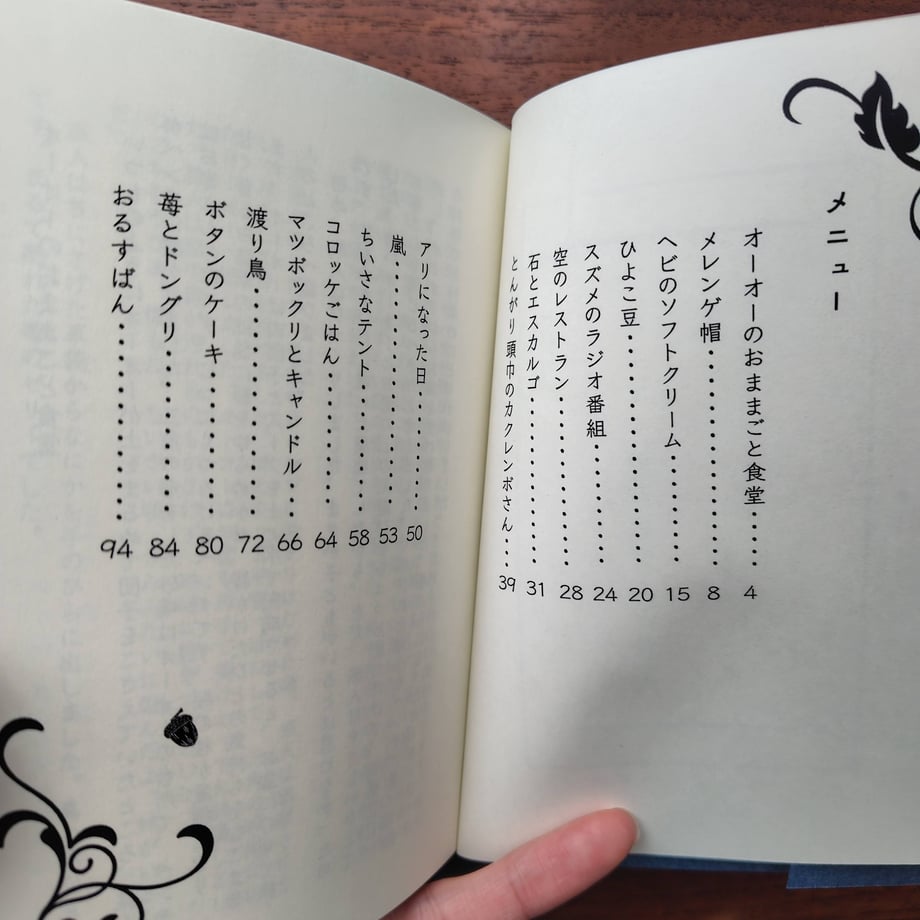 メニュー
オーオーのおままごと食堂‥‥ 4
メレンゲ帽‥‥‥‥‥‥‥‥ 8
ヘビのソフトクリーム‥‥‥‥ 15
ひよこ豆‥‥‥‥‥‥‥‥ 20
スズメのラジオ番組‥‥‥‥ 24
空のレストラン‥‥‥‥‥‥ 28
石とエスカルゴ‥‥‥‥‥‥ 31
とんがり頭巾のカクレンボさん‥‥ 39
アリになった日‥‥‥‥‥‥ 50
嵐‥‥‥‥‥‥‥‥‥‥ 53
ちいさなテント‥‥‥‥‥‥ 58
コロッケごはん‥‥‥‥‥‥ 64
マツボックリとキャンドル‥‥ 66
渡り鳥‥‥‥‥‥‥‥‥ 72
ボタンのケーキ‥‥‥‥‥‥ 80
苺とドングリ‥‥‥‥‥‥ 84
おるすばん‥‥‥‥‥‥‥ 94